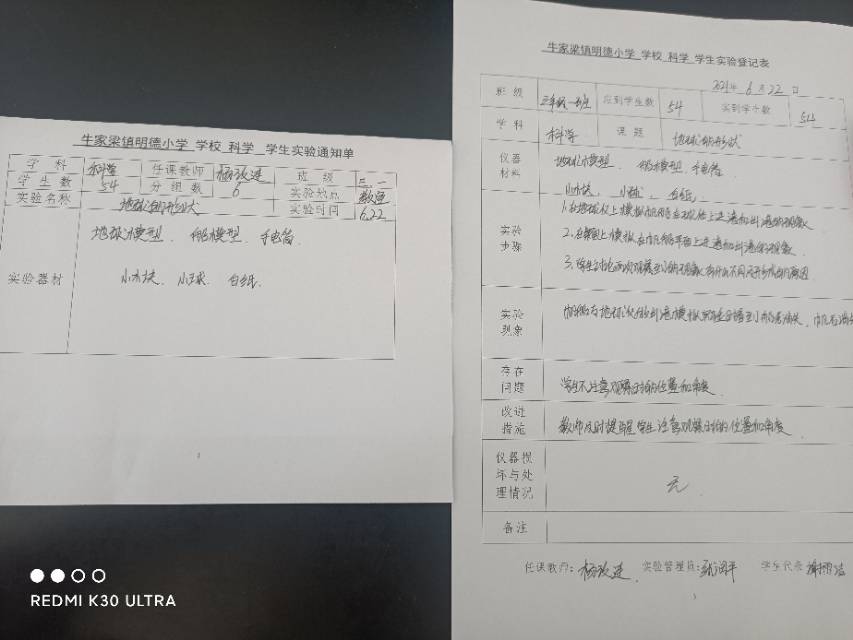 牛家梁镇明德小学 学校 科学 学生实验通知单
学科 科学 任课教师 杨改进 班级 三.一
学生数 54 分组数 6 实验地点 教室
实验名称 地球的形状 实验时间 6.22
实验器材
地球模型、帆船模型、手电筒
小木块、小球、白纸.
牛家梁镇明德小学 学校 科学 学生实验登记表
2021年 6月22日
班级 三年级一班 应到学生数 54 实到学生数 54
学科 科学 课题 地球的形状
仪器材料
地球仪模型、帆船模型、手电筒
小木块、小球、白纸
实验步骤
1.在地球仪上模拟帆船在球体上进港和出港的现象
2.在桌面上模拟在帆船平面上进港和出港的现象.
3.学生讨论两次观察到的现象有什么不同及形成的原因
实验现象
存在问题
学生不注意观察时的位置和角度.
改进措施
教师及时提醒学生注意观察时的位置和角度.
仪器损坏与处理情况
无.
备注
任课教师：杨改进 实验管理员： 学生代表：
REDMI K30 ULTRA